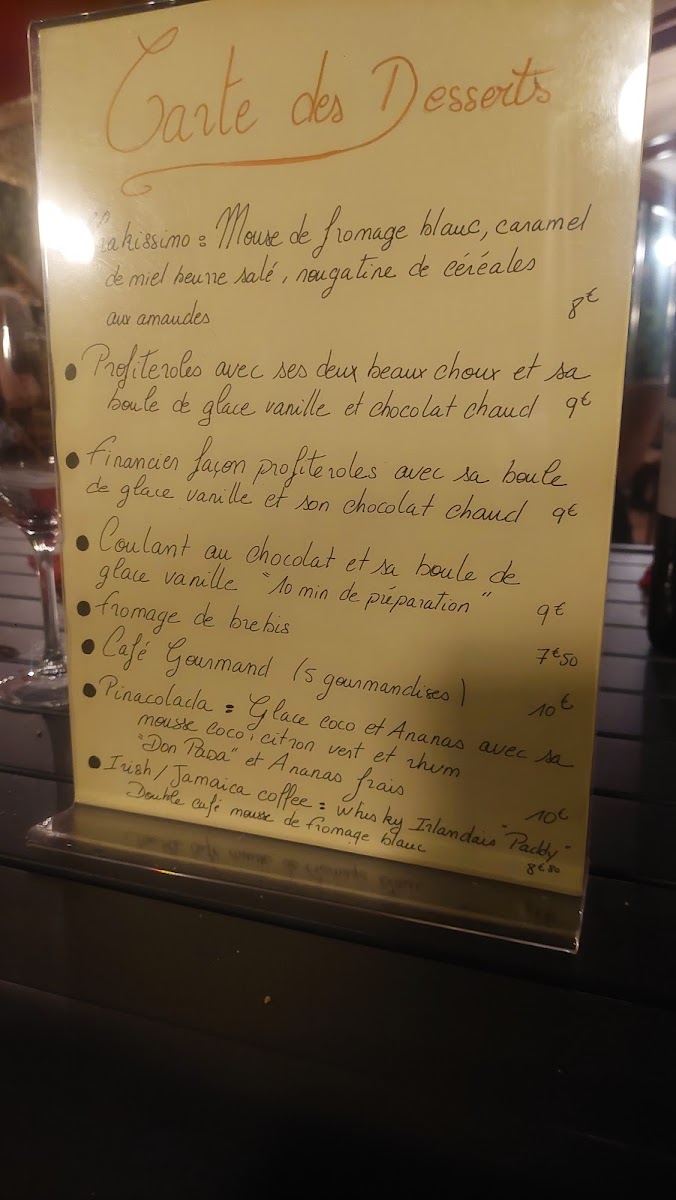 Carte des Desserts
: Mouse de fromage blanc, caramel
de miel beurre salé, nougatine de céréales
aux amandes 8€
• Profiteroles avec ses deux beaux choux et sa
boule de glace vanille et chocolat chaud 9€
• Financier façon profiteroles avec sa boule
de glace vanille et son chocolat chaud 9€
• Coulant au chocolat et sa boule de
glace vanille "10 min de préparation" 9€
• fromage de brebis 7€50
• Café Gourmand (5 gourmandises) 10€
• Pinacolada = Glace coco et Ananas avec sa
mousse coco, citron vert et rhum
"Don PaPa" et Ananas frais 10€
• Irish/Jamaica coffee = Whisky Irlandais "Paddy"
Double café mousse de fromage blanc 8€50